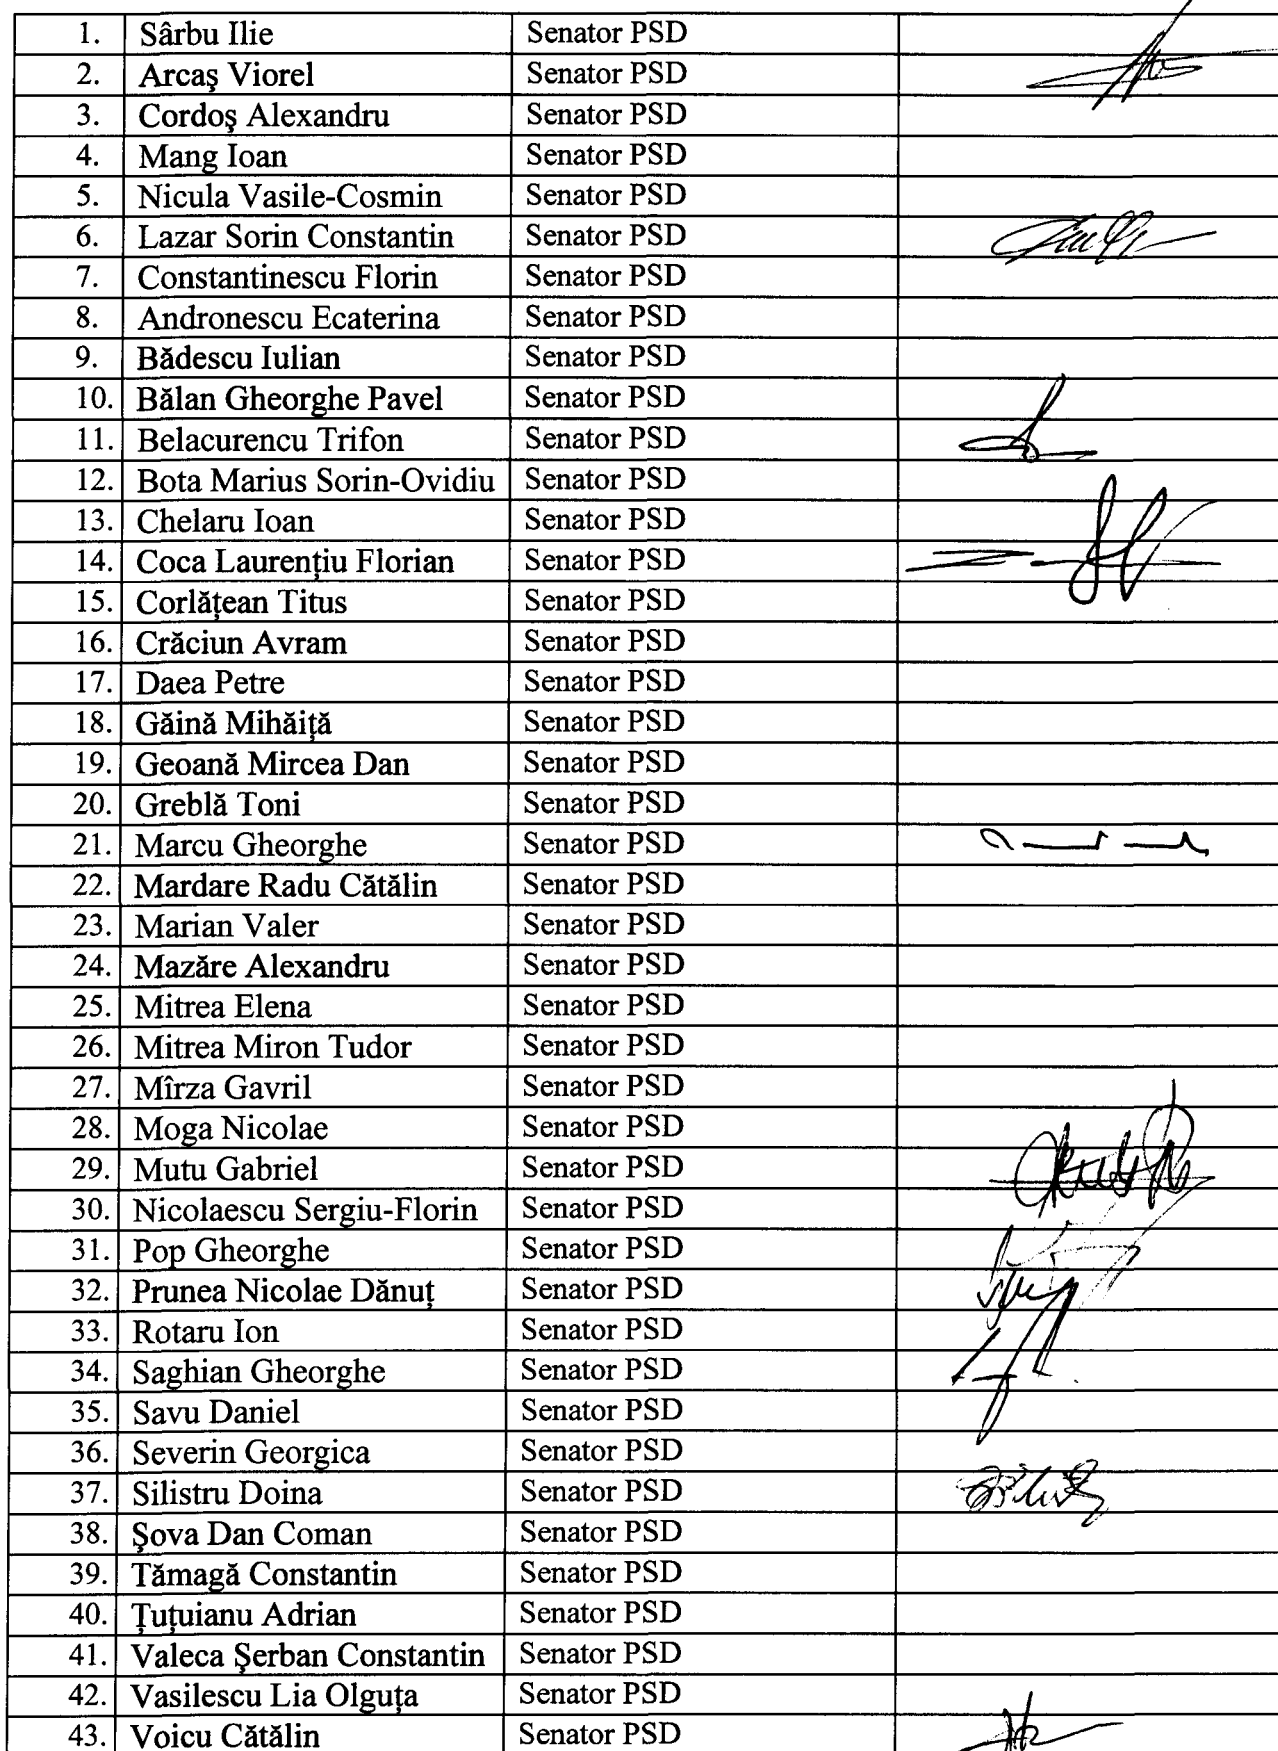 1. Sârbu Ilie Senator PSD
2. Arcaş Viorel Senator PSD
3. Cordoş Alexandru Senator PSD
4. Mang Ioan Senator PSD
5. Nicula Vasile-Cosmin Senator PSD
6. Lazar Sorin Constantin Senator PSD
7. Constantinescu Florin Senator PSD
8. Andronescu Ecaterina Senator PSD
9. Bădescu Iulian Senator PSD
10. Bălan Gheorghe Pavel Senator PSD
11. Belacurencu Trifon Senator PSD
12. Bota Marius Sorin-Ovidiu Senator PSD
13. Chelaru Ioan Senator PSD
14. Coca Laurenţiu Florian Senator PSD
15. Corlăţean Titus Senator PSD
16. Crăciun Avram Senator PSD
17. Daea Petre Senator PSD
18. Găină Mihăiţă Senator PSD
19. Geoană Mircea Dan Senator PSD
20. Greblă Toni Senator PSD
21. Marcu Gheorghe Senator PSD
22. Mardare Radu Cătălin Senator PSD
23. Marian Valer Senator PSD
24. Mazăre Alexandru Senator PSD
25. Mitrea Elena Senator PSD
26. Mitrea Miron Tudor Senator PSD
27. Mîrza Gavril Senator PSD
28. Moga Nicolae Senator PSD
29. Mutu Gabriel Senator PSD
30. Nicolaescu Sergiu-Florin Senator PSD
31. Pop Gheorghe Senator PSD
32. Prunea Nicolae Dănuţ Senator PSD
33. Rotaru Ion Senator PSD
34. Saghian Gheorghe Senator PSD
35. Savu Daniel Senator PSD
36. Severin Georgica Senator PSD
37. Silistru Doina Senator PSD
38. Şova Dan Coman Senator PSD
39. Tămagă Constantin Senator PSD
40. Ţuţuianu Adrian Senator PSD
41. Valeca Şerban Constantin Senator PSD
42. Vasilescu Lia Olguţa Senator PSD
43. Voicu Cătălin Senator PSD